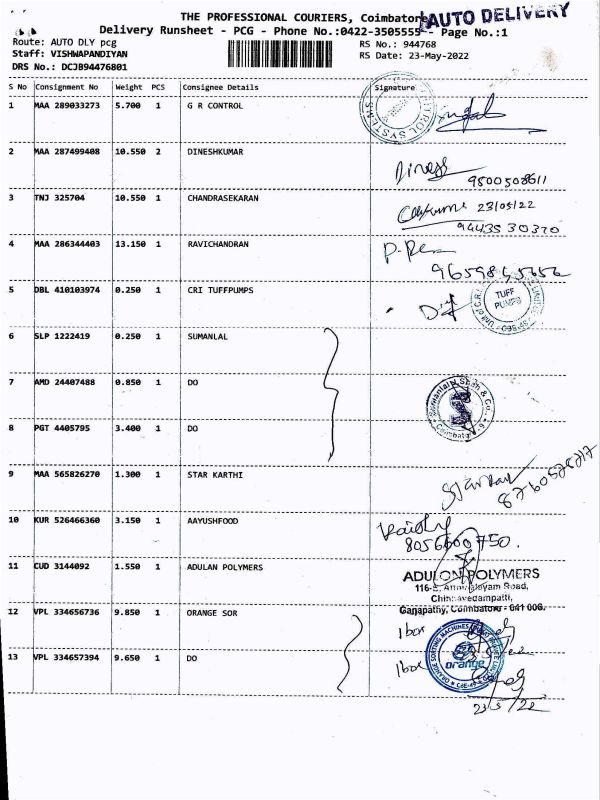 THE PROFESSIONAL COURIERS, Coimbatore
AUTO DELIVERY
Delivery Runsheet - PCG - Phone No.:0422-3505555 - Page No.:1
Route: AUTO DLY pcg
RS No.: 944768
Staff: VISHWAPANDIYAN
RS Date: 23-May-2022
DRS No.: DCJB94476801
S No Consignment No Weight PCS Consignee Details Signature
1 MAA 289033273 5.700 1 G R CONTROL
2 MAA 287499408 10.550 2 DINESHKUMAR
Dinesh
9800508611
3 TNJ 325704 10.550 1 CHANDRASEKARAN
23/05/22
9443530370
4 MAA 286344403 13.150 1 RAVICHANDRAN
9659845656
5 DBL 410103974 0.250 1 CRI TUFFPUMPS
TUFF
PUMPS
6 SLP 1222419 0.250 1 SUMANLAL
7 AMD 24407488 0.850 1 DO
Sumanlal J Shah & Co.
S
Coimbatore
8 PGT 4405795 3.400 1 DO
9 MAA 565826270 1.300 1 STAR KARTHI
10 KUR 526466360 3.150 1 AAYUSHFOOD
8056600750.
11 CUD 3144092 1.550 1 ADULAN POLYMERS
ADULON POLYMERS
Road,
Chinnavedampatti,
Ganapathy, Coimbatore - 641 006.
12 VPL 334656736 9.850 1 ORANGE SOR
1 box
13 VPL 334657394 9.650 1 DO
1 box
Orange
23/5/22